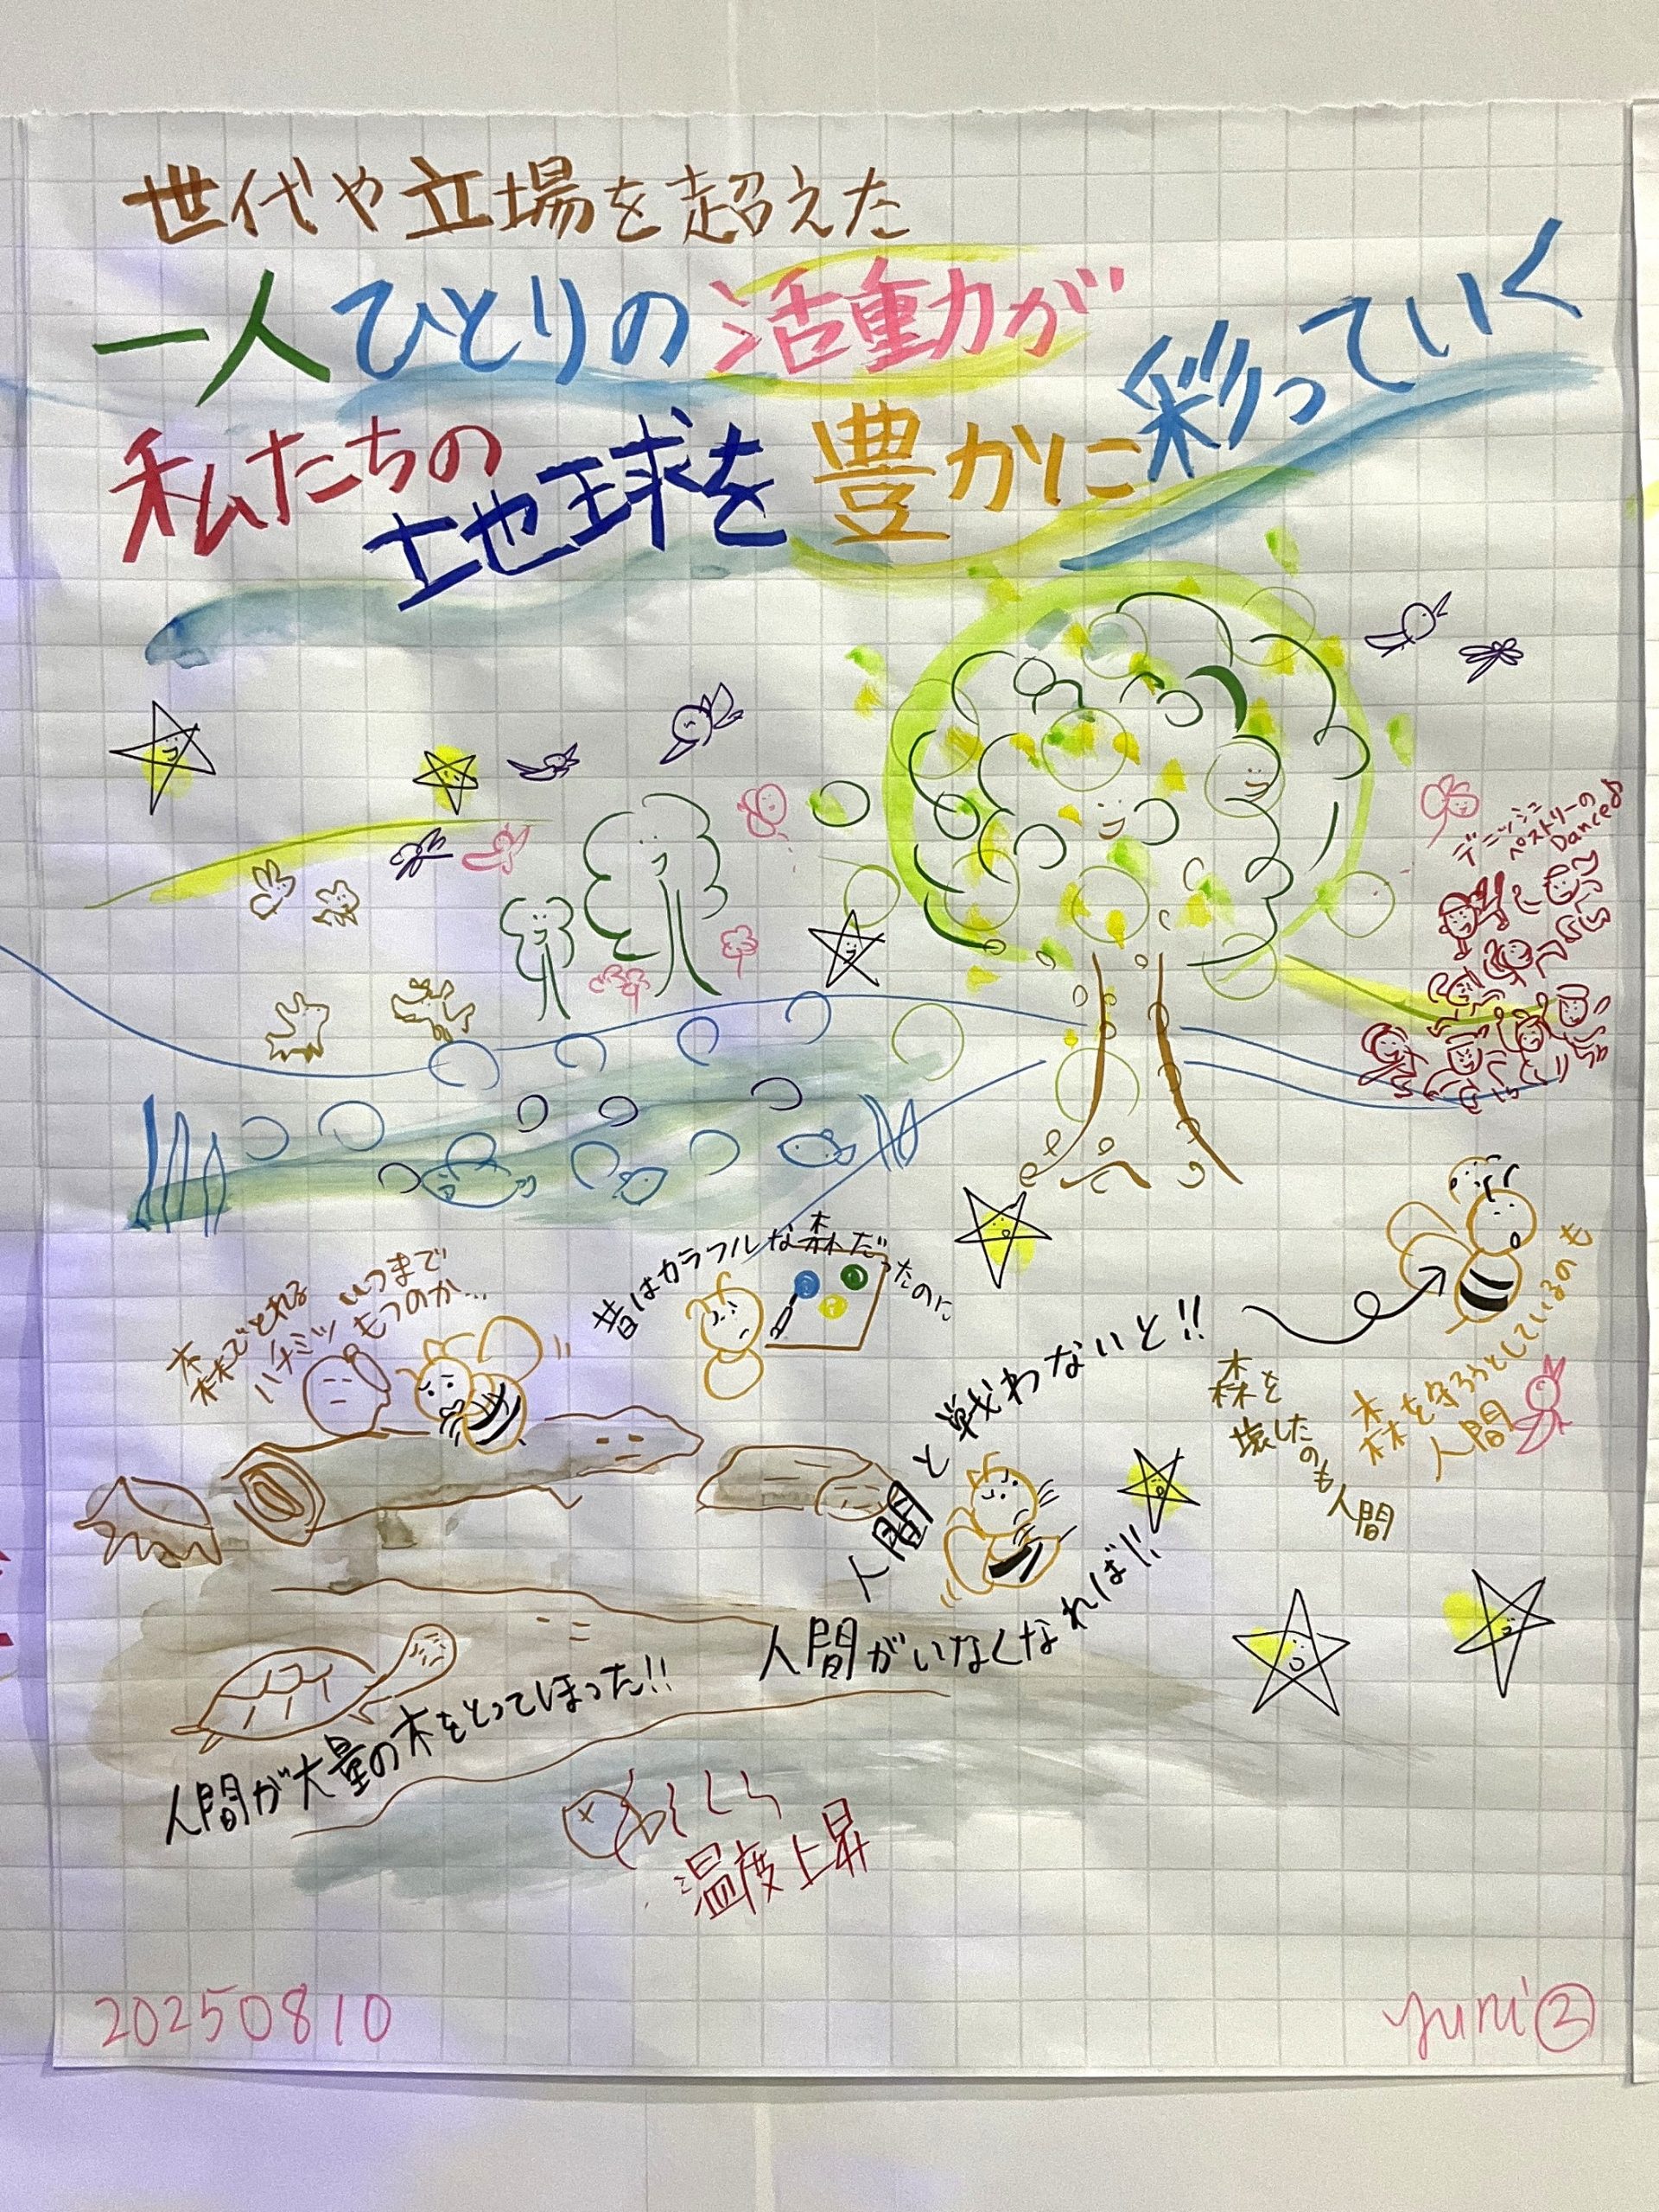 世代や立場を超えた
一人ひとりの活動が
私たちの地球を豊かに彩っていく
デニッシュ
ペストリーの
Dance♪
森でとれる
ハチミツ いつまで
もつのか…
昔はカラフルな森だったのに
人間と戦わないと!!
人間がいなくなれば!!
森を
壊したのも人間
森を守ろうとしているのも
人間
人間が大量の木をとってしまった!!
温度上昇
20250810
yuri②